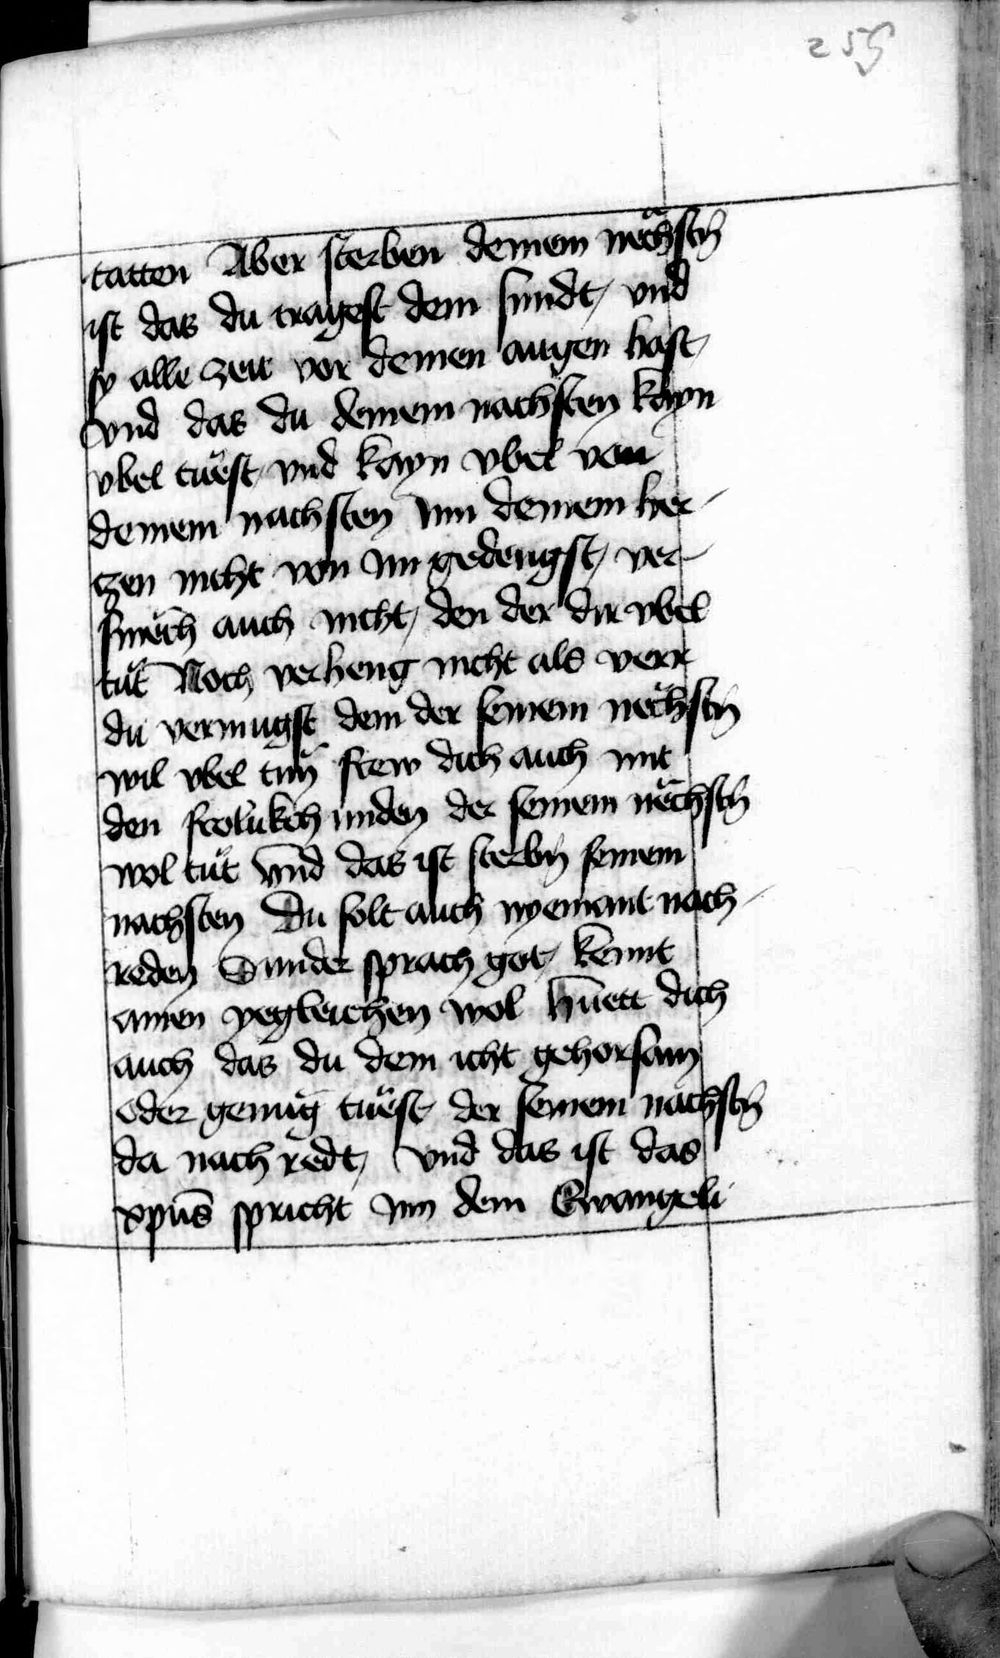 259
tatten Aber sterben deinem nëchstn̄
ist das du tragest dein sundt, vnd
sy alle zeit vor deinen augen hast,
Vnd das du deinem nachsten kayn
vbel tuest, vnd kayn vbel von
deinem nachsten Inn deinem her-
tzen nicht von im gedengst, ver-
smëch auch nicht, den der dir vbel
tůt Noch verheng nicht als verr
du vermugst dem der seinem nëchstn̄
wil vbel tuñ frew dich auch mit
den frolukch unden der seinem nëchstn̄
wol tůt Vnd das ist sterbn̄ seinem
nachsten Du solt auch nyemant nach-
reden Sunder sprach got, kennt
ainen yegleichen wol Hüett dich
auch das du dem icht gehorsam
oder genůg tuest, der seinem nachstn̄
da nach redt, Vnd das ist das
xpūs spricht Inn dem Ewangeli